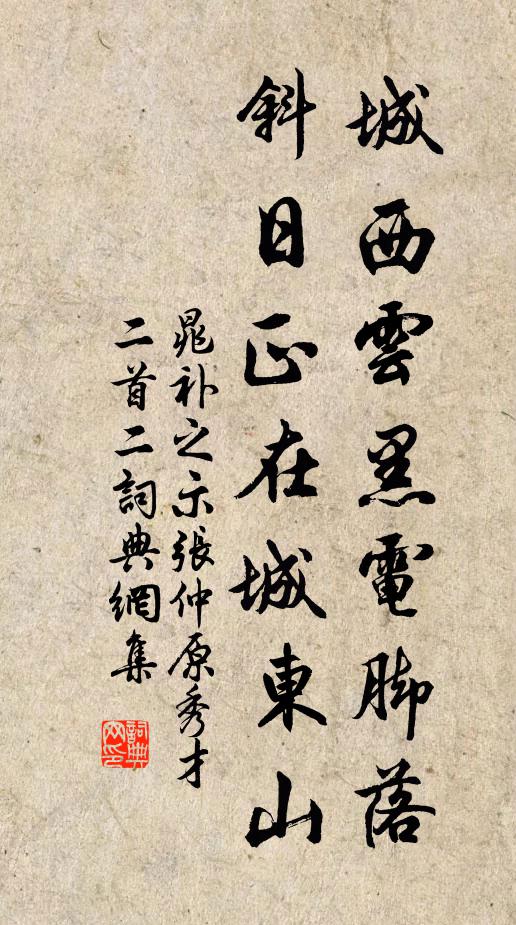 城西雲黑電脚落
斜日正在城東山
晁补之示張仲原秀才
二首二詞典網集
詞典
网印